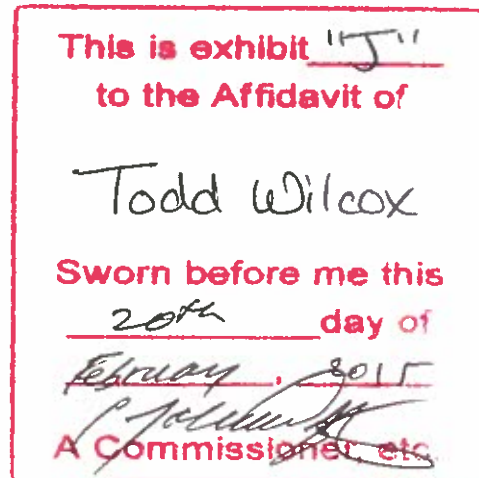 This is exhibit "J"
to the Affidavit of
Todd Wilcox
Sworn before me this
20th day of
February, 2015
A Commissioner, etc.